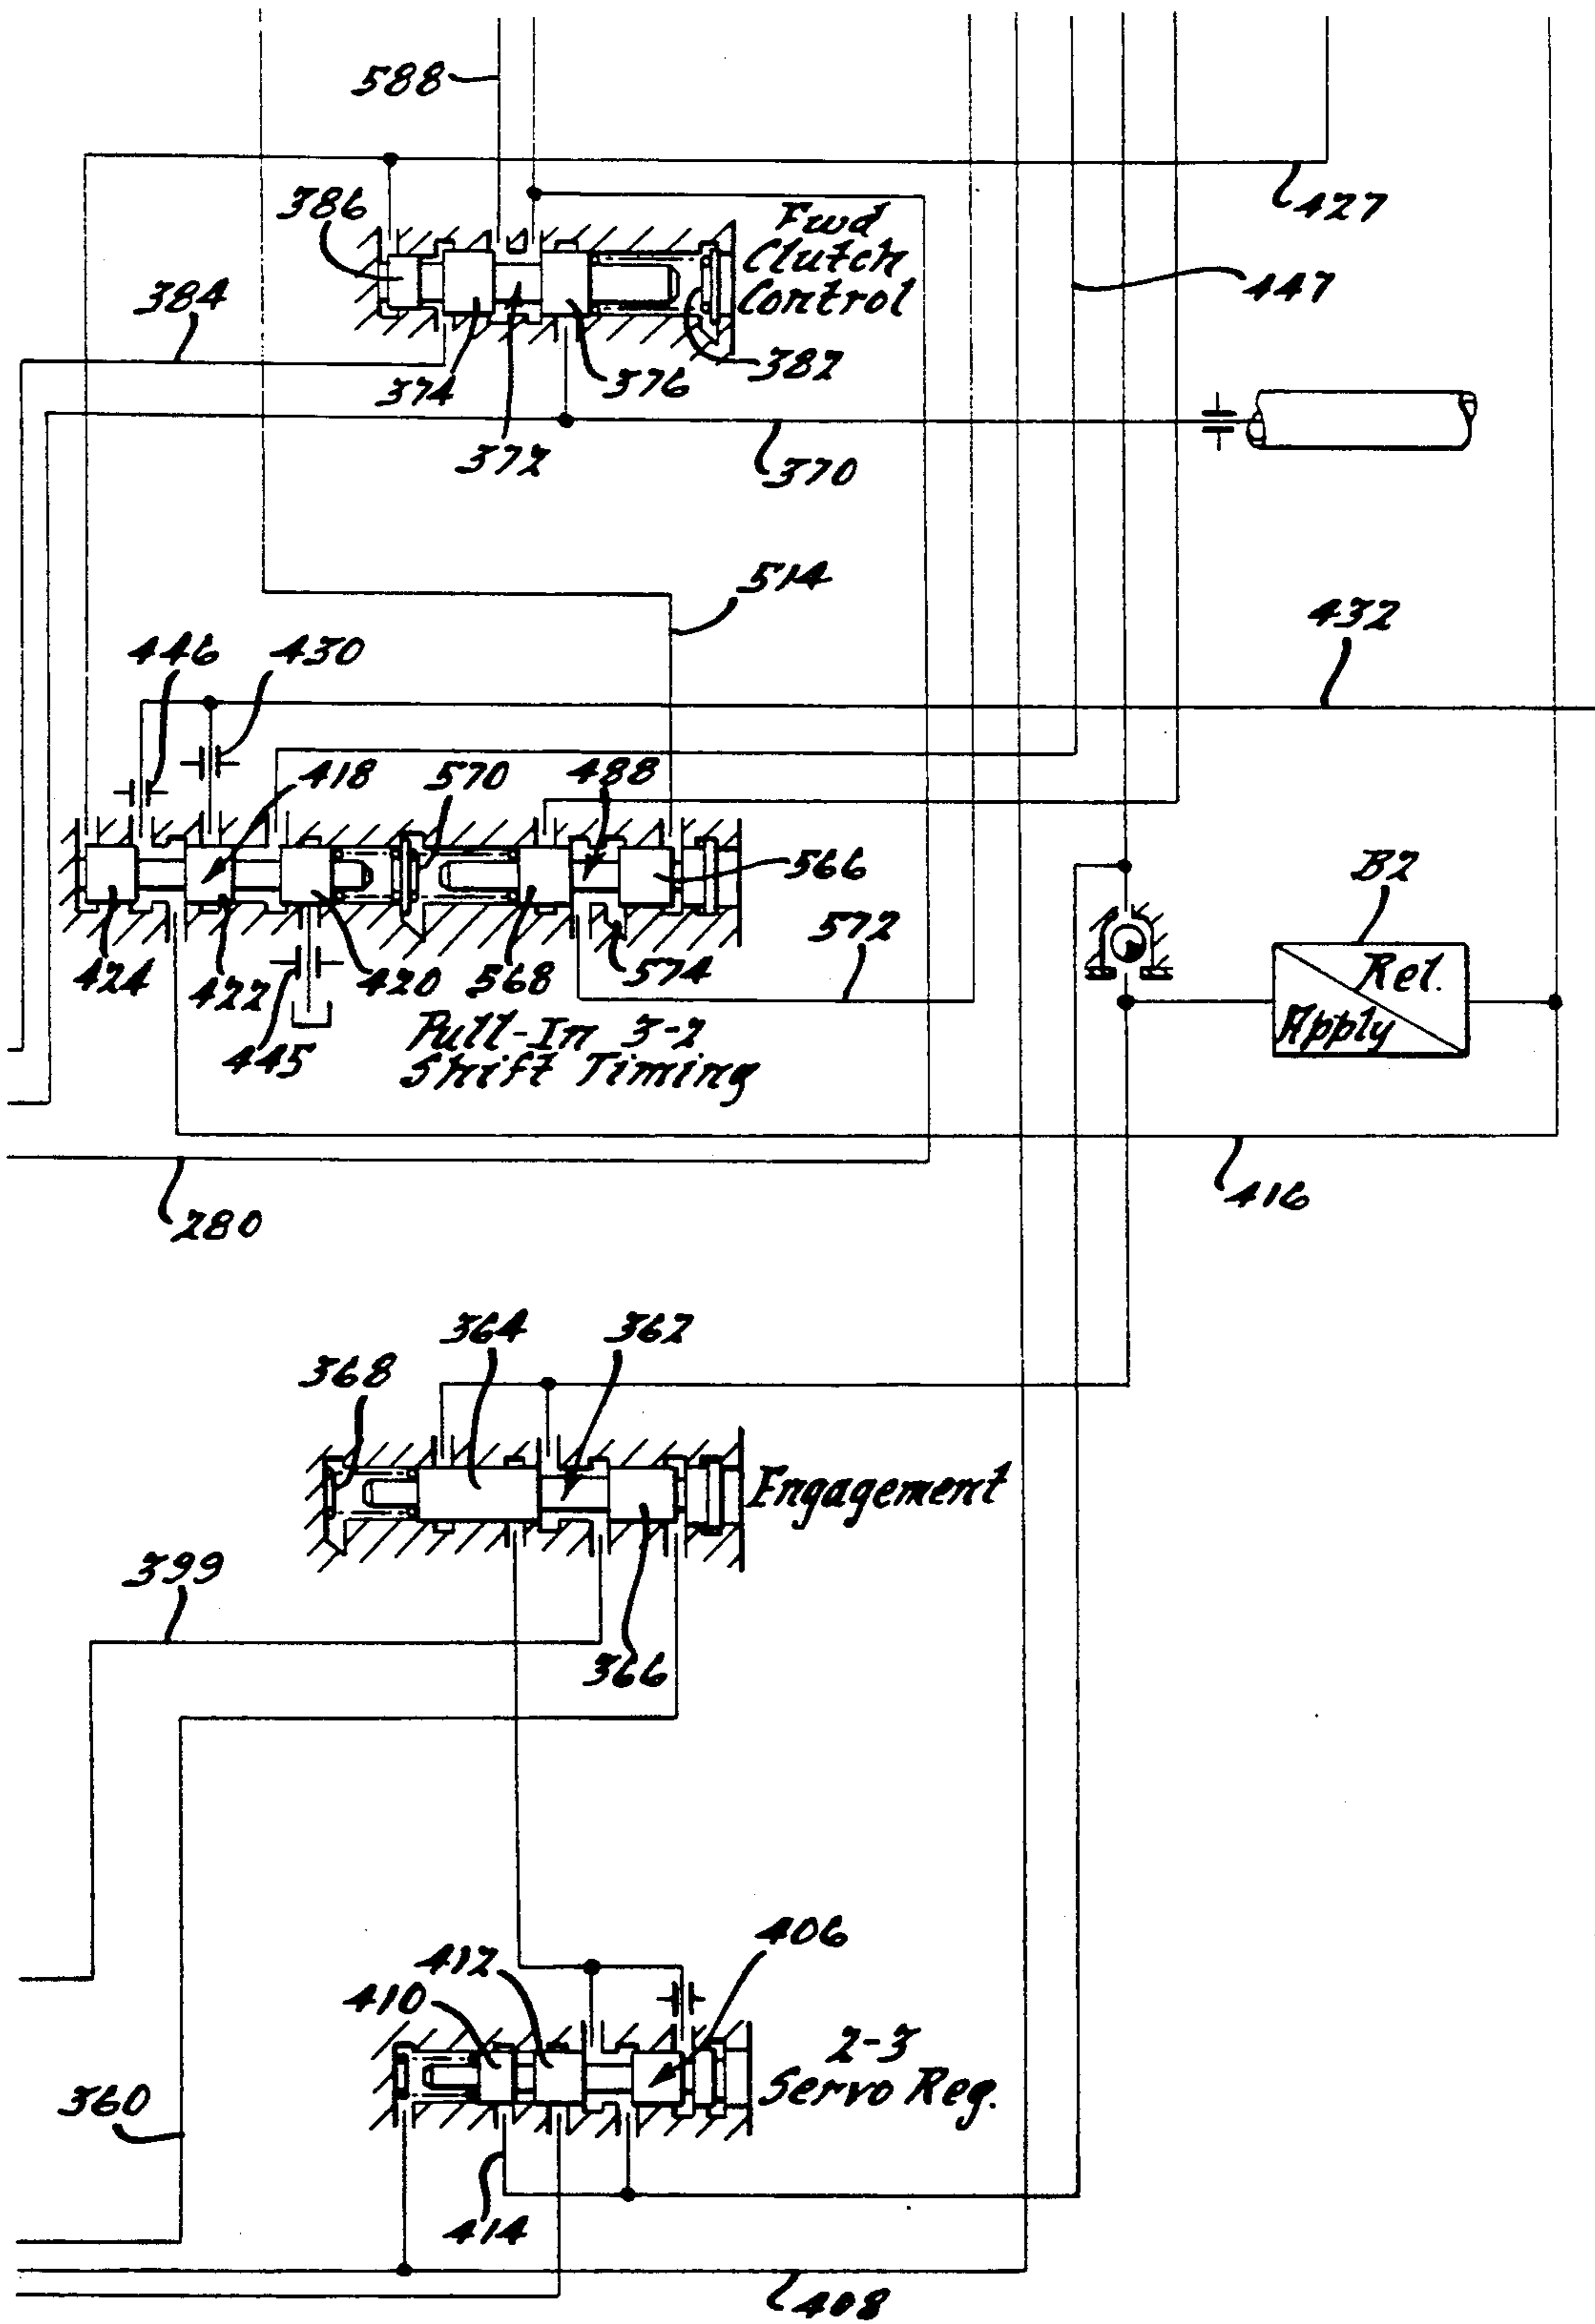 588
427
386
Fwd
Clutch
Control
447
384
374
376
382
372
370
514
432
446
430
418
570
488
566
B2
572
Rel.
Apply
424
422
420
568
574
445
Pull-In 3-2
Shift Timing
416
280
364
362
368
Engagement
399
366
406
412
410
2-3
Servo Reg.
360
414
408